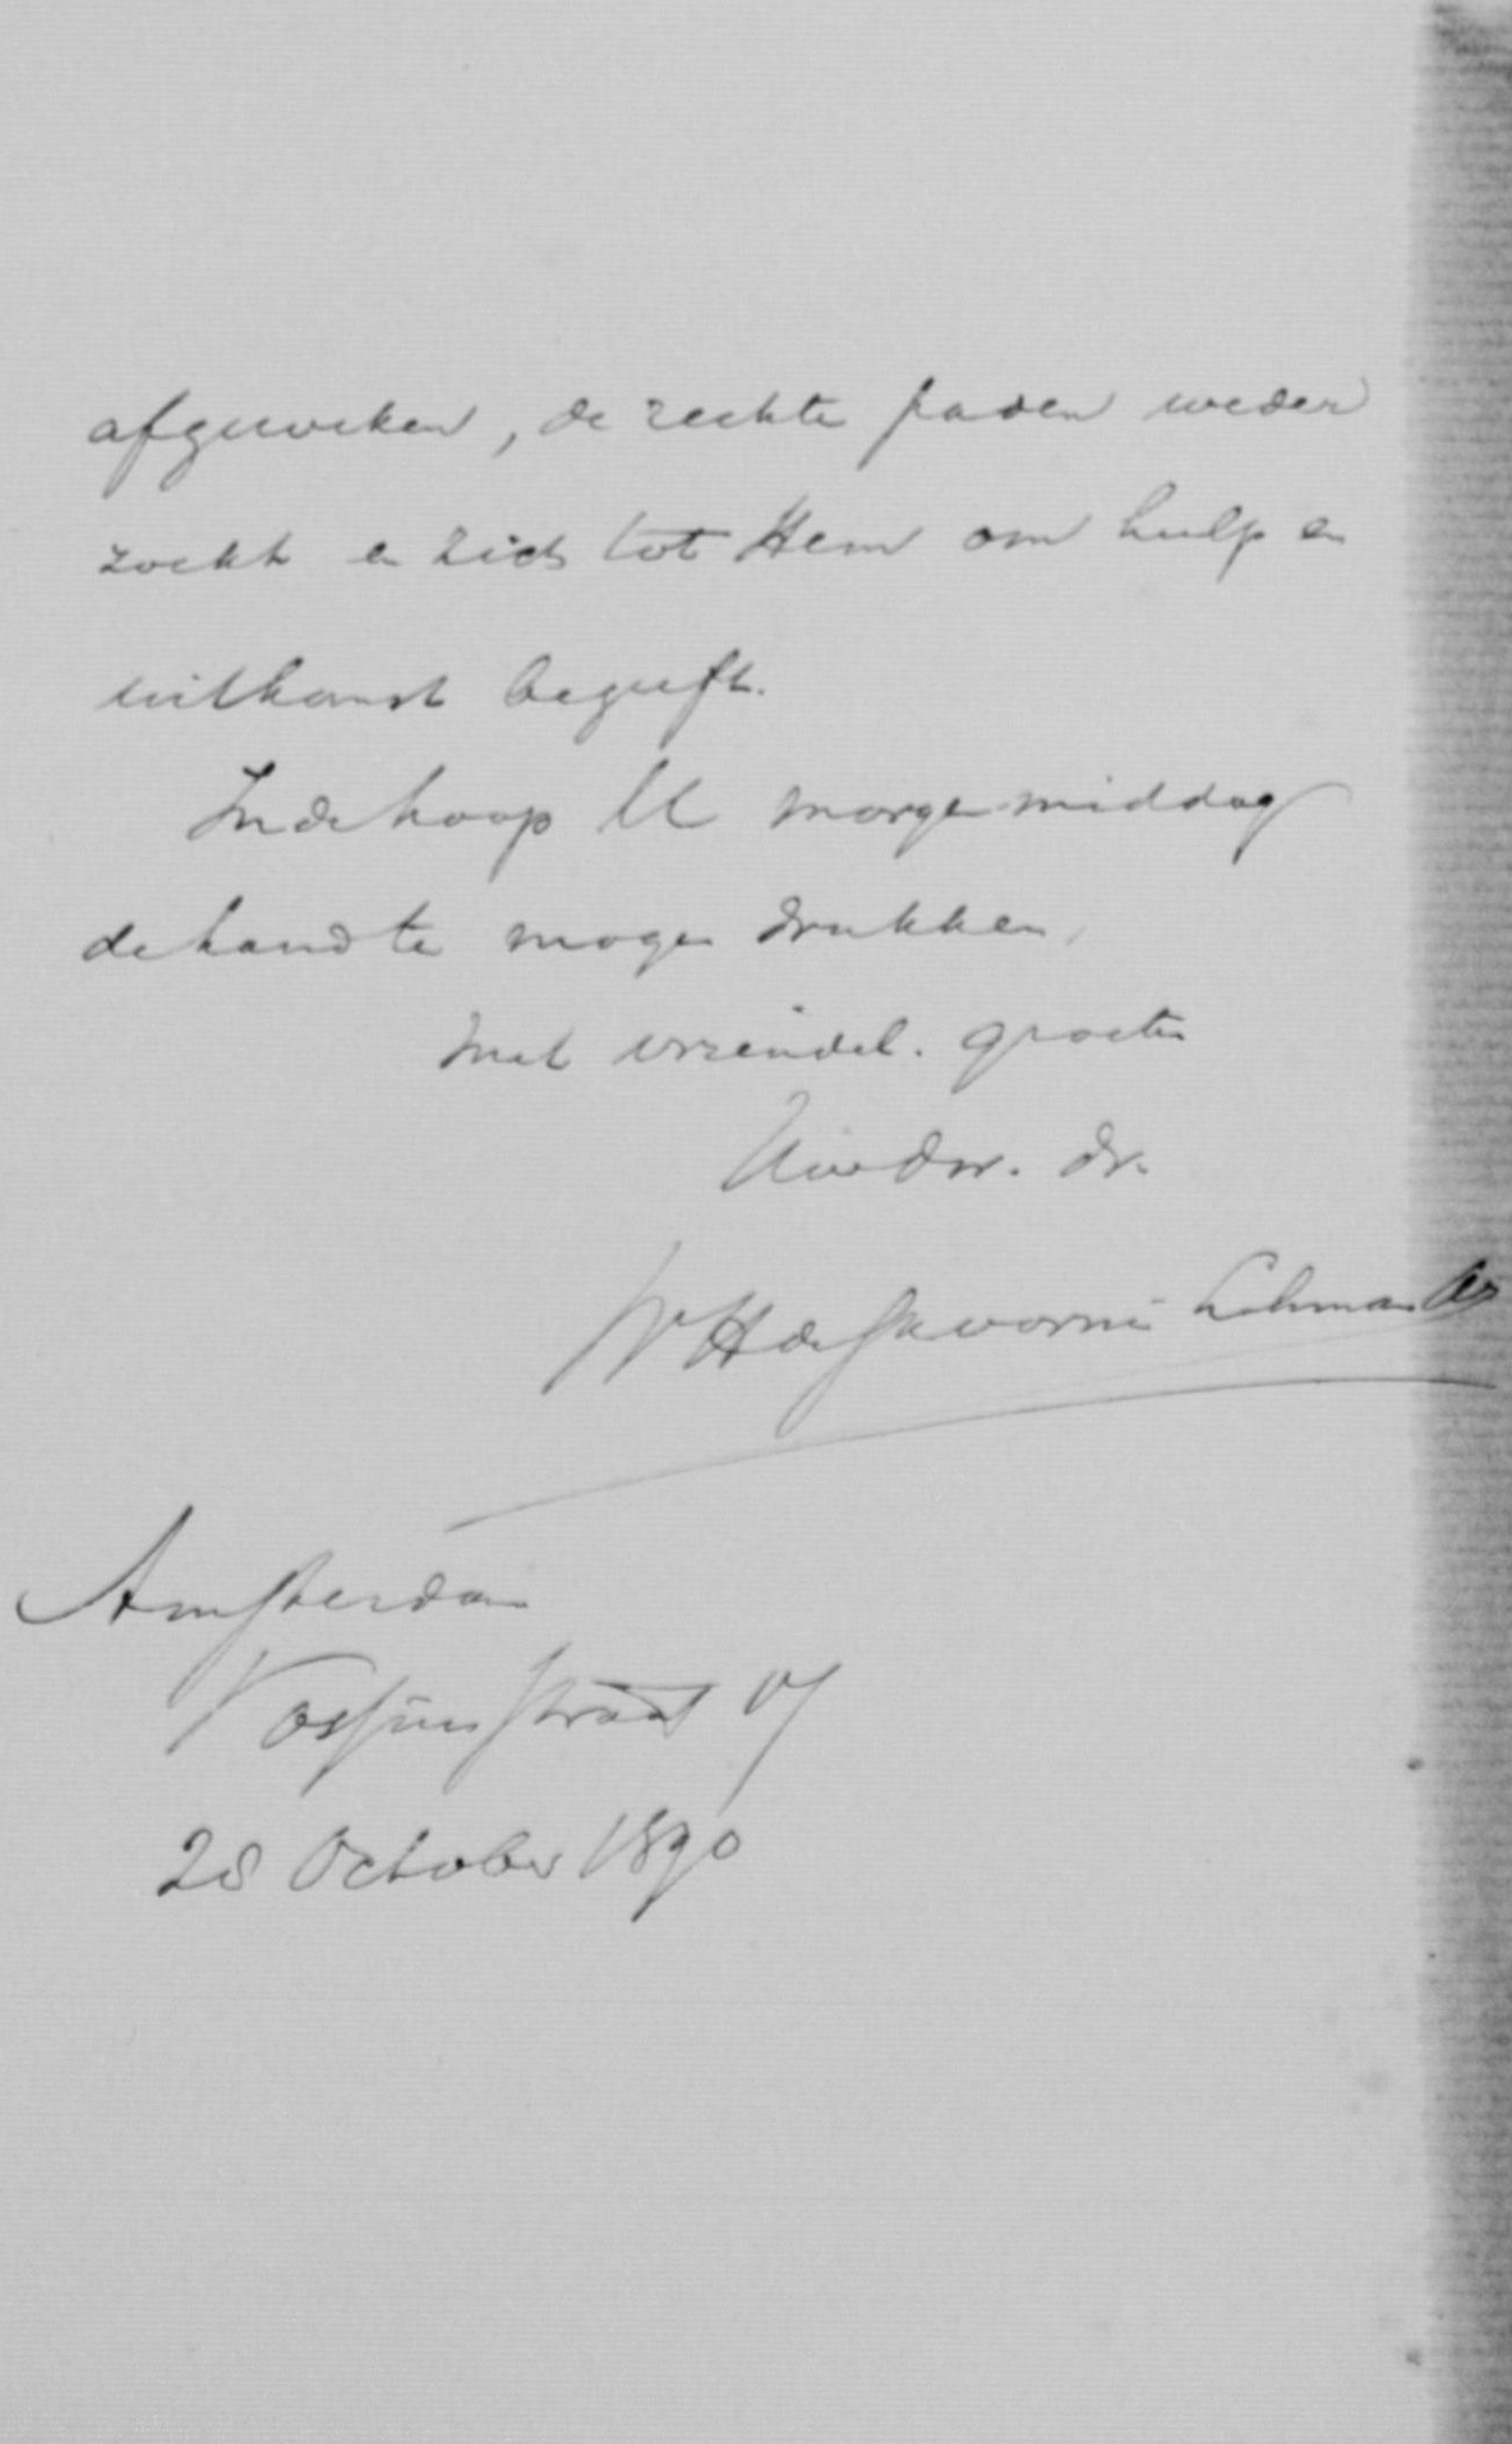 afgeweken, de rechte paden weder
zoekt en zich tot Hem om hulp en
uitkomst begeeft.
In de hoop U morgen middag
de hand te mogen drukken,
met vriendel. groeten
Uwdw. dr.
WH de Savornin Lohman
Amsterdam
Vossiusstraat
28 October 1890